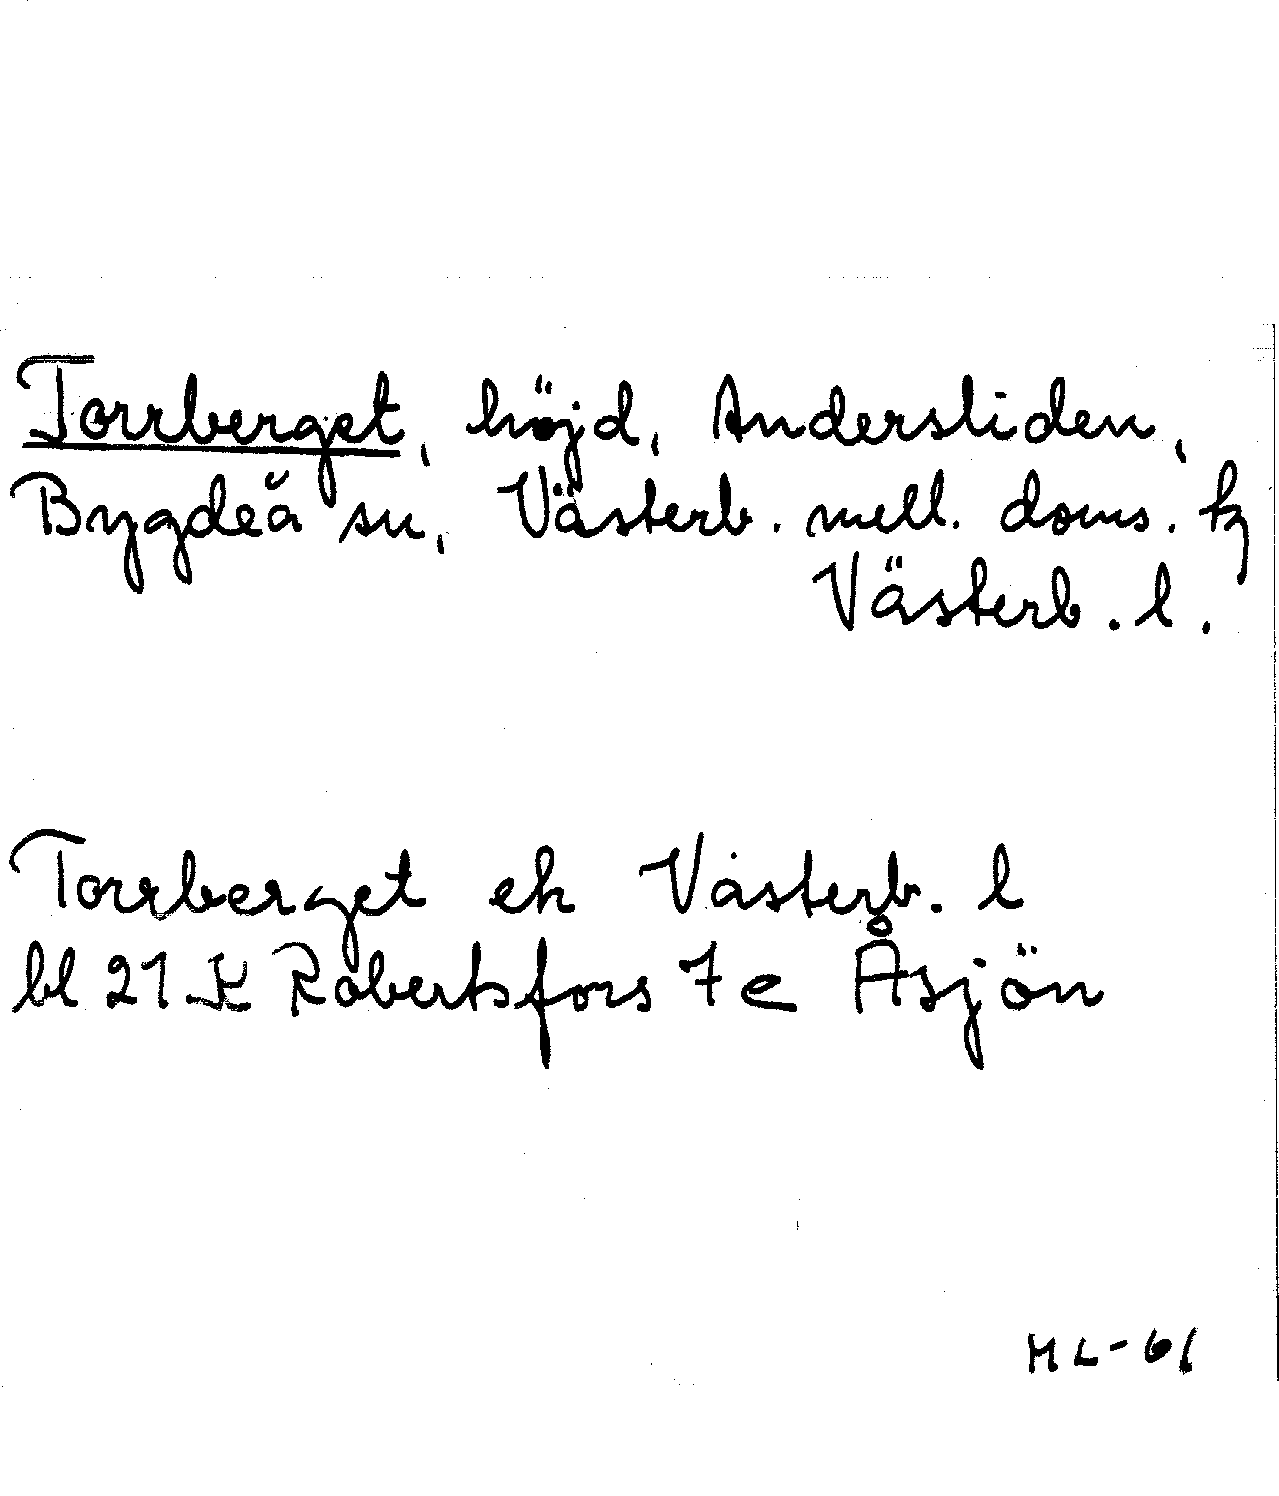 Torrberget, höjd, Andersliden,
Bygdeå sn, Västerb. mell. doms. tg
Västerb. l.
Torrberget ek Västerb. l
bl 21 K Robertsfors 7 e Åsjön
ML-61